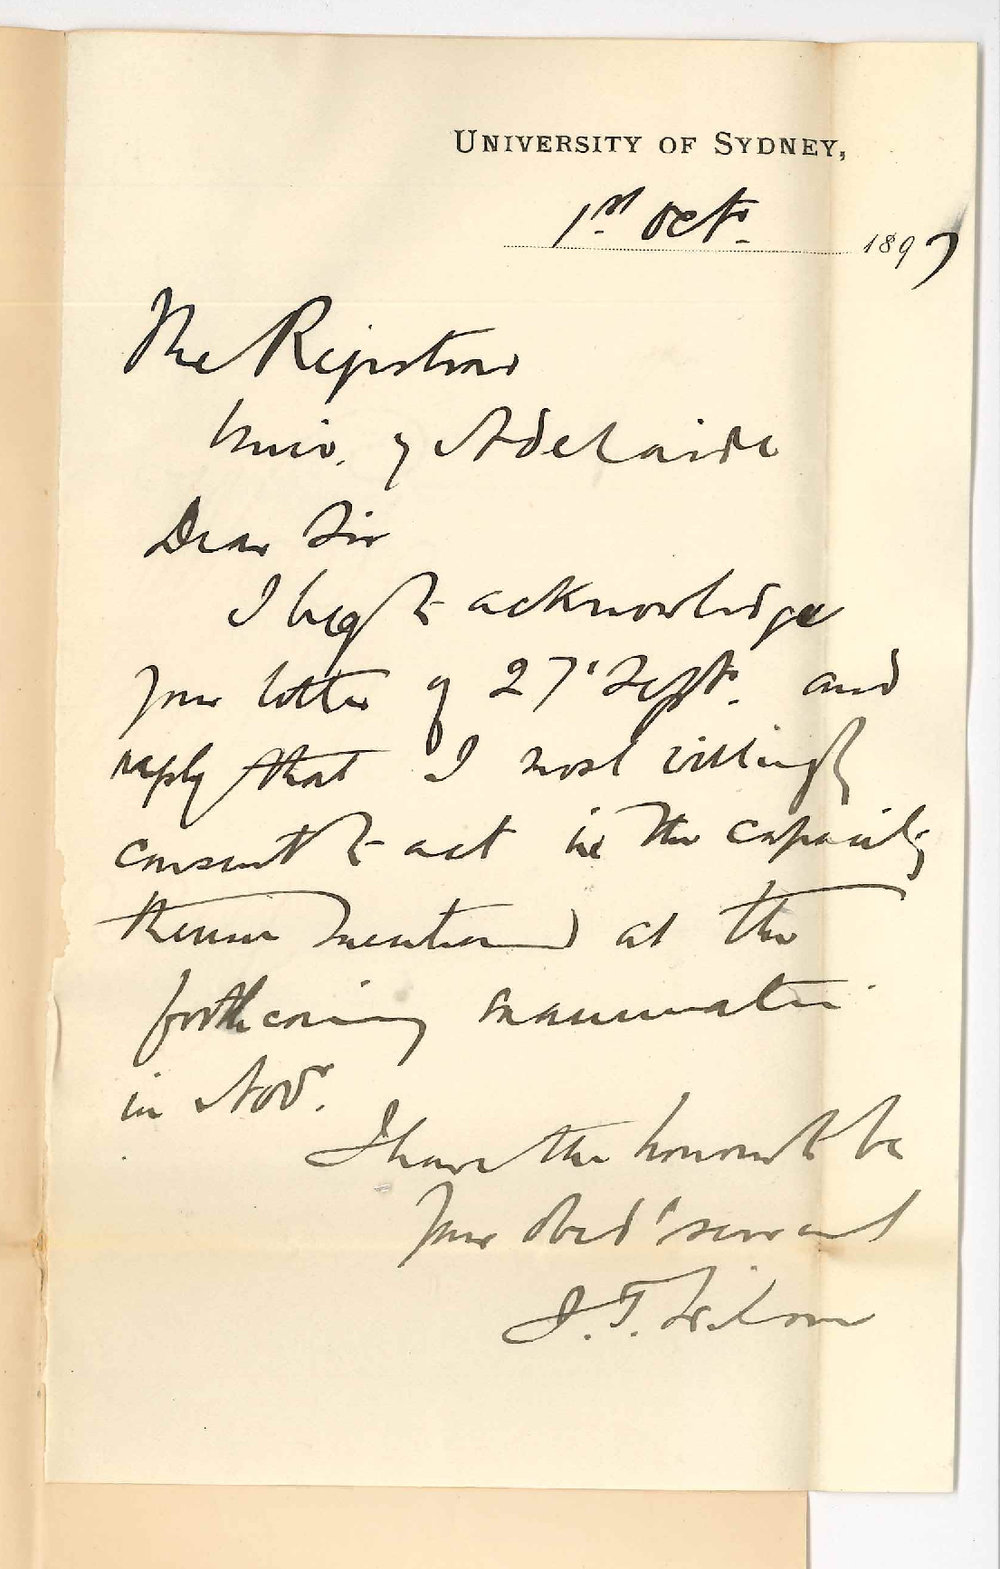 UNIVERSITY OF SYDNEY,
1st Octr. 1897
The Registrar
Univ. of Adelaide
Dear Sir
I beg to acknowledge
your letter of 27' Septr. and
reply that I most willingly
consent to act in the capacity
therein mentioned at the
forthcoming examination
in Novr.
I have the honour to be
Your obed't servant
J. T. Wilson